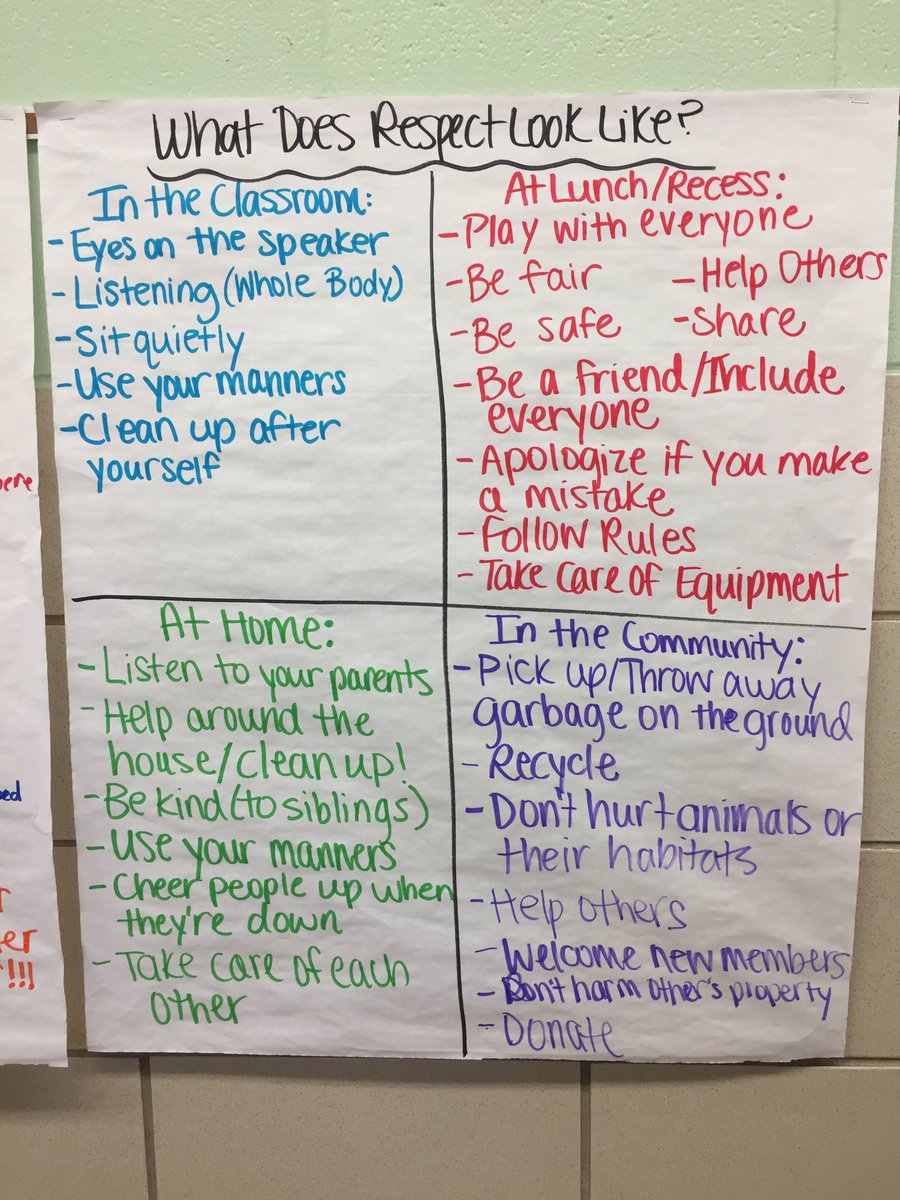 What Does Respect Look Like?
In the Classroom:
- Eyes on the speaker
- Listening (Whole Body)
- Sit quietly
- Use your manners
- Clean up after
yourself
At Lunch/Recess:
- Play with everyone
- Be fair
- Help Others
- Be safe
- Share
- Be a friend/Include
everyone
- Apologize if you make
a mistake
- Follow Rules
- Take Care of Equipment
At Home:
- Listen to your parents
- Help around the
house/clean up!
- Be kind (to siblings)
- Use your manners
- Cheer people up when
they're down
- Take care of each
other
In the Community:
- Pick up/Throw away
garbage on the ground
- Recycle
- Don't hurt animals or
their habitats
- Help others
- Welcome new members
- Don't harm other's property
- Donate